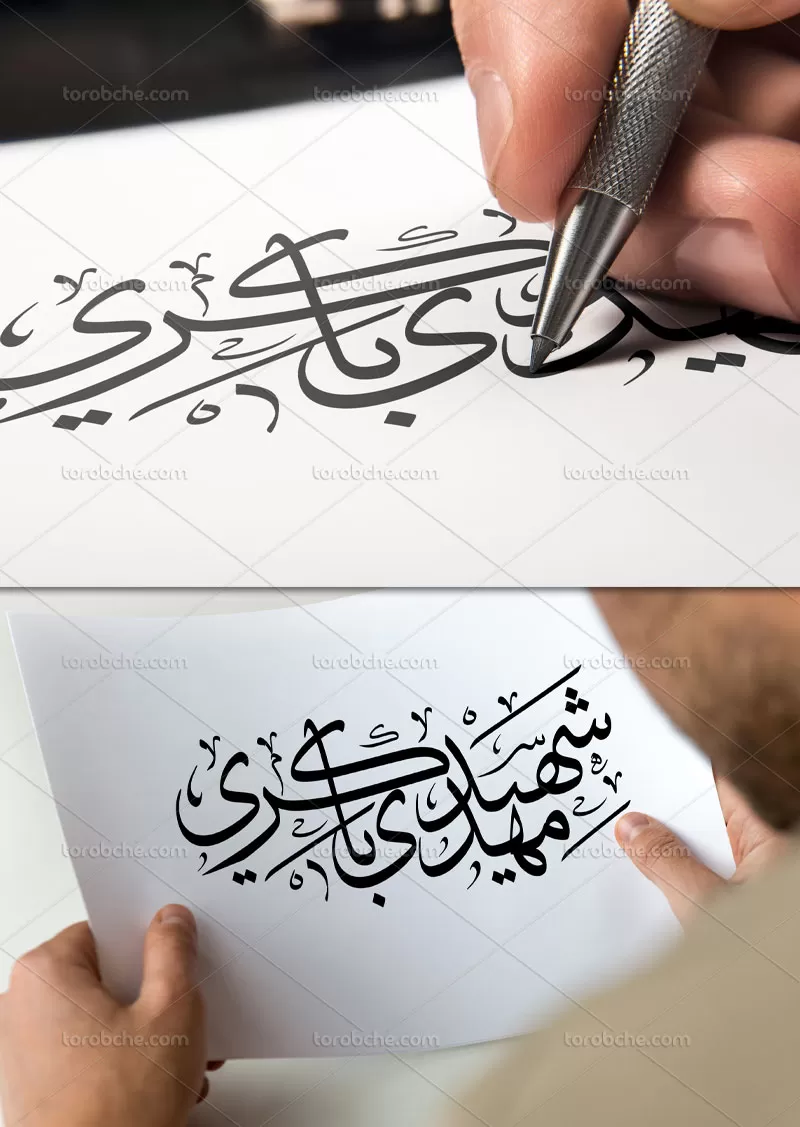 torobche.com torobche.com torobche.com
torobche.com torobche.com torobche.com
شهید مهدی باکري
torobche.com torobche.com torobche.com
torobche.com torobche.com torobche.com
شهید
مهدی باکري
torobche.com torobche.com torobche.com
torobche.com torobche.com torobche.com